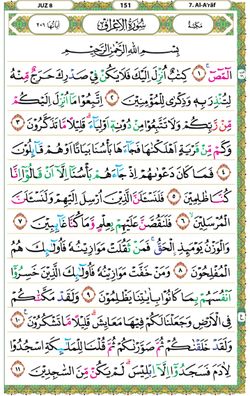 JUZ 8 151 7. Al-A'râf
مكية سورة الأعراف آياتها ٢٠٦
بسم الله الرحمن الرحيم
الٓمٓصٓ ١ كِتَٰبٌ أُنزِلَ إِلَيْكَ فَلَا يَكُن فِى صَدْرِكَ حَرَجٌ مِّنْهُ
لِتُنذِرَ بِهِۦ وَذِكْرَىٰ لِلْمُؤْمِنِينَ ٢ ٱتَّبِعُوا۟ مَآ أُنزِلَ إِلَيْكُم
مِّن رَّبِّكُمْ وَلَا تَتَّبِعُوا۟ مِن دُونِهِۦٓ أَوْلِيَآءَ قَلِيلًا مَّا تَذَكَّرُونَ ٣
وَكَم مِّن قَرْيَةٍ أَهْلَكْنَٰهَا فَجَآءَهَا بَأْسُنَا بَيَٰتًا أَوْ هُمْ قَآئِلُونَ ٤
فَمَا كَانَ دَعْوَىٰهُمْ إِذْ جَآءَهُم بَأْسُنَآ إِلَّآ أَن قَالُوٓا۟ إِنَّا
كُنَّا ظَٰلِمِينَ ٥ فَلَنَسْـَٔلَنَّ ٱلَّذِينَ أُرْسِلَ إِلَيْهِمْ وَلَنَسْـَٔلَنَّ
ٱلْمُرْسَلِينَ ٦ فَلَنَقُصَّنَّ عَلَيْهِم بِعِلْمٍ وَمَا كُنَّا غَآئِبِينَ ٧
وَٱلْوَزْنُ يَوْمَئِذٍ ٱلْحَقُّ فَمَن ثَقُلَتْ مَوَٰزِينُهُۥ فَأُو۟لَٰٓئِكَ هُمُ
ٱلْمُفْلِحُونَ ٨ وَمَنْ خَفَّتْ مَوَٰزِينُهُۥ فَأُو۟لَٰٓئِكَ ٱلَّذِينَ خَسِرُوٓا۟
أَنفُسَهُم بِمَا كَانُوا۟ بِـَٔايَٰتِنَا يَظْلِمُونَ ٩ وَلَقَدْ مَكَّنَّٰكُمْ
فِى ٱلْأَرْضِ وَجَعَلْنَا لَكُمْ فِيهَا مَعَٰيِشَ قَلِيلًا مَّا تَشْكُرُونَ ١٠
وَلَقَدْ خَلَقْنَٰكُمْ ثُمَّ صَوَّرْنَٰكُمْ ثُمَّ قُلْنَا لِلْمَلَٰٓئِكَةِ ٱسْجُدُوا۟
لِـَٔادَمَ فَسَجَدُوٓا۟ إِلَّآ إِبْلِيسَ لَمْ يَكُن مِّنَ ٱلسَّٰجِدِينَ ١١